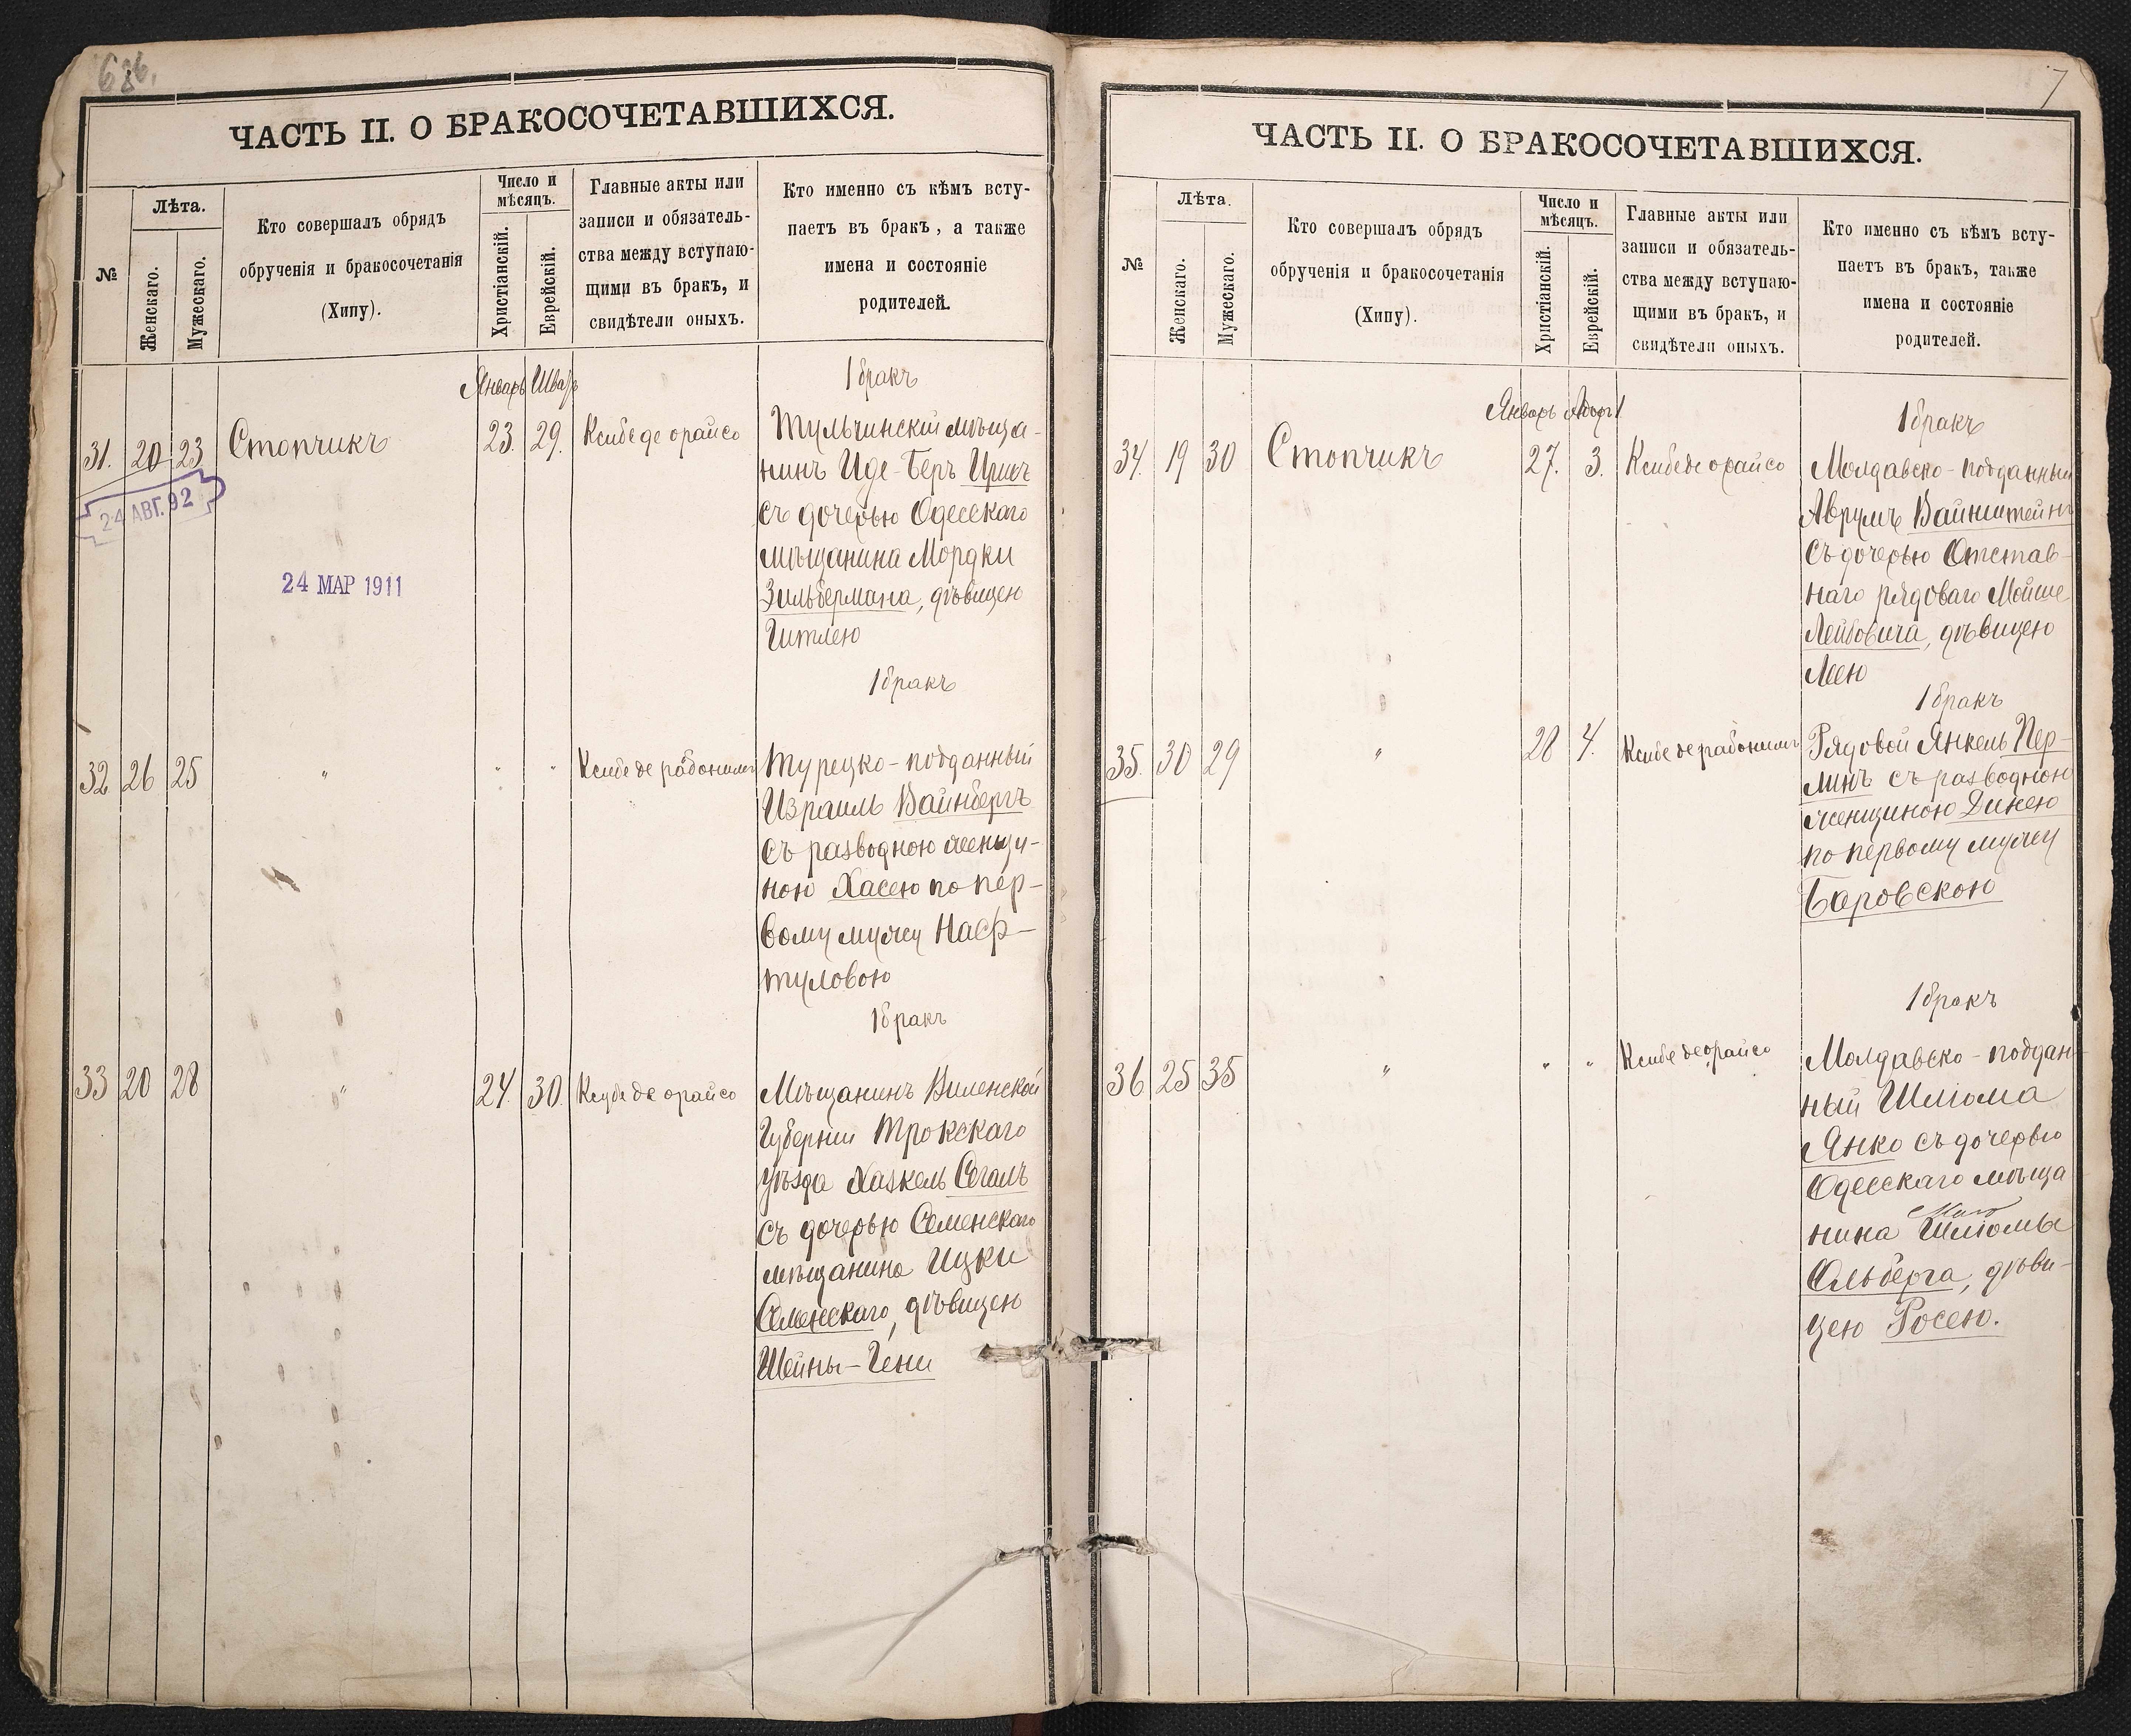 686.
ЧАСТЬ II. О БРАКОСОЧЕТАВШИХСЯ.
№
Лѣта.
Женскаго.
Мужескаго.
Кто совершалъ обрядъ
обрученія и бракосочетанія
(Хипу).
Число и
мѣсяцъ.
Христіанскій.
Еврейскій.
Главные акты или
записи и обязатель-
ства между вступаю-
щими въ бракъ, и
свидѣтели оныхъ.
Кто именно съ кѣмъ всту-
паетъ въ бракъ, а также
имена и состояніе
родителей.
Январь Шватъ
1 бракъ
31. 20 23 Стопчикъ 23. 29. Ксибе де орайсо
Тульчинскій мѣща-
нинъ Иде-Беръ
съ дочерью Одесскаго
мѣщанина Мордки
Зильбермана, дѣвицею
Гитлею
24 АВГ. 92
24 МАР 1911
1 бракъ
32 26 25 " " " Ксибе де рабонимъ
Турецко-подданный
Израиль Вайнбергъ
съ разводною женщи-
ною Хасею по пер-
вому мужу Наф-
туловою
1 бракъ
33 20 28 " 24. 30. Ксубе де орайсо
Мѣщанинъ Виленской
Губерніи Трокскаго
уѣзда Хаскель Сегалъ
съ дочерью Семенскаго
мѣщанина Ицки
Семенскаго, дѣвицею
Шейны-Гени
7
ЧАСТЬ II. О БРАКОСОЧЕТАВШИХСЯ.
№
Лѣта.
Женскаго.
Мужескаго.
Кто совершалъ обрядъ
обрученія и бракосочетанія
(Хипу).
Число и
мѣсяцъ.
Христіанскій.
Еврейскій.
Главные акты или
записи и обязатель-
ства между вступаю-
щими въ бракъ, и
свидѣтели оныхъ.
Кто именно съ кѣмъ всту-
паетъ въ бракъ, также
имена и состояніе
родителей.
Январь
1 бракъ
34. 19 30 Стопчикъ 27. 3. Ксибе де орайсо
Молдавско-подданный
Аврумъ Вайнштейнъ
съ дочерью Отстав-
наго рядоваго Мойше
Лейбовича, дѣвицею
Леею
1 бракъ
35. 30 29 " 28 4. Ксибе де рабонимъ
Рядовой Янкель Пер-
линъ съ разводною
женщиною Динею
по первому мужу
Боровскою
1 бракъ
36 25 35 " " " Ксибе де орайсо
Молдавско-поддан-
ный Шліома
Янко съ дочерью
Одесскаго мѣща
нина Шліомы
Ольберга, дѣви-
цею Росею.